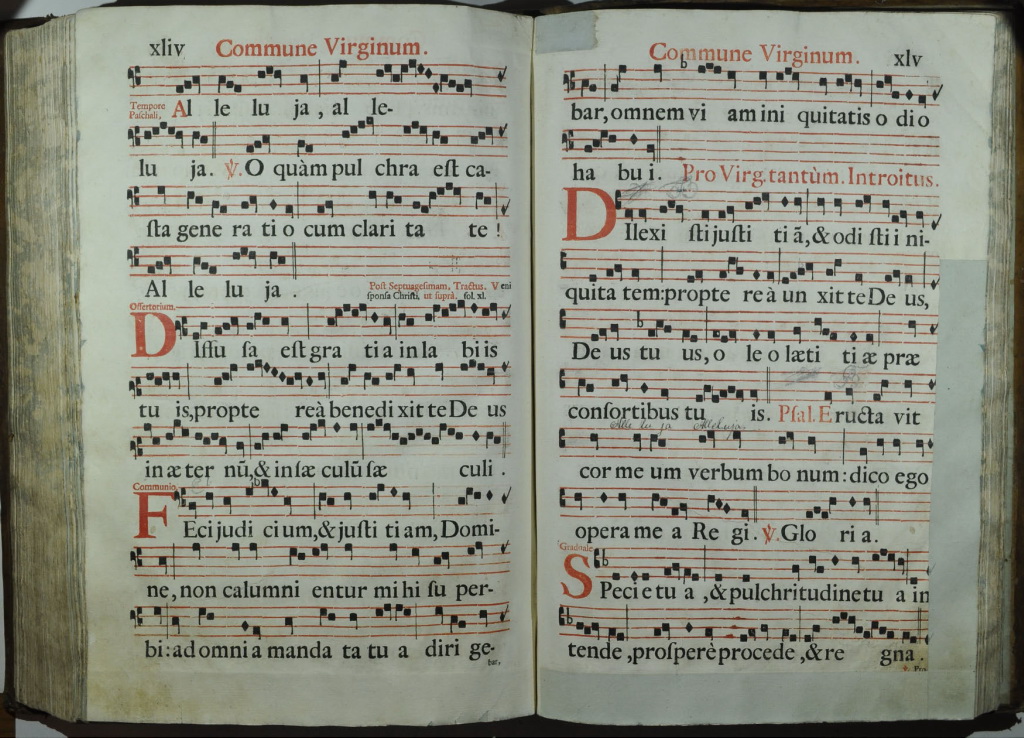 xliv Commune Virginum.
Tempore
Paschali, Al le lu ja, al le-
lu ja. ℣. O quàm pul chra eſt ca-
ſta gene ra ti o cum clari ta te!
Al le lu ja.
Poſt Septuageſimam, Tractus. Veni
ſponſa Chriſti, ut ſuprà. fol. xl.
Offertorium.
DIffu ſa eſt gra ti a in la bi is
tu is, propte reà benedi xit te De us
in æ ter nū, & in ſæ culū ſæ culi.
Communio.
FEci judi ci um, & juſti ti am, Domi-
ne, non calumni entur mi hi ſu per-
bi: ad omni a manda ta tu a diri ge-
bar,
Commune Virginum. xlv
bar, omnem vi am ini quitatis o di o
ha bu i. Pro Virg. tantùm. Introitus.
DIlexi ſti juſti ti ā, & odi ſti i ni-
quita tem: propte re à un xit te De us,
De us tu us, o le o læti ti æ præ
conſortibus tu is. Pſal. Eructa vit
Alle lu ja Alleluja
cor me um verbum bo num: dico ego
opera me a Re gi. ℣. Glo ri a.
Graduale
SPeci e tu a, & pulchritudine tu a in
tende, proſperè procede, & re gna.